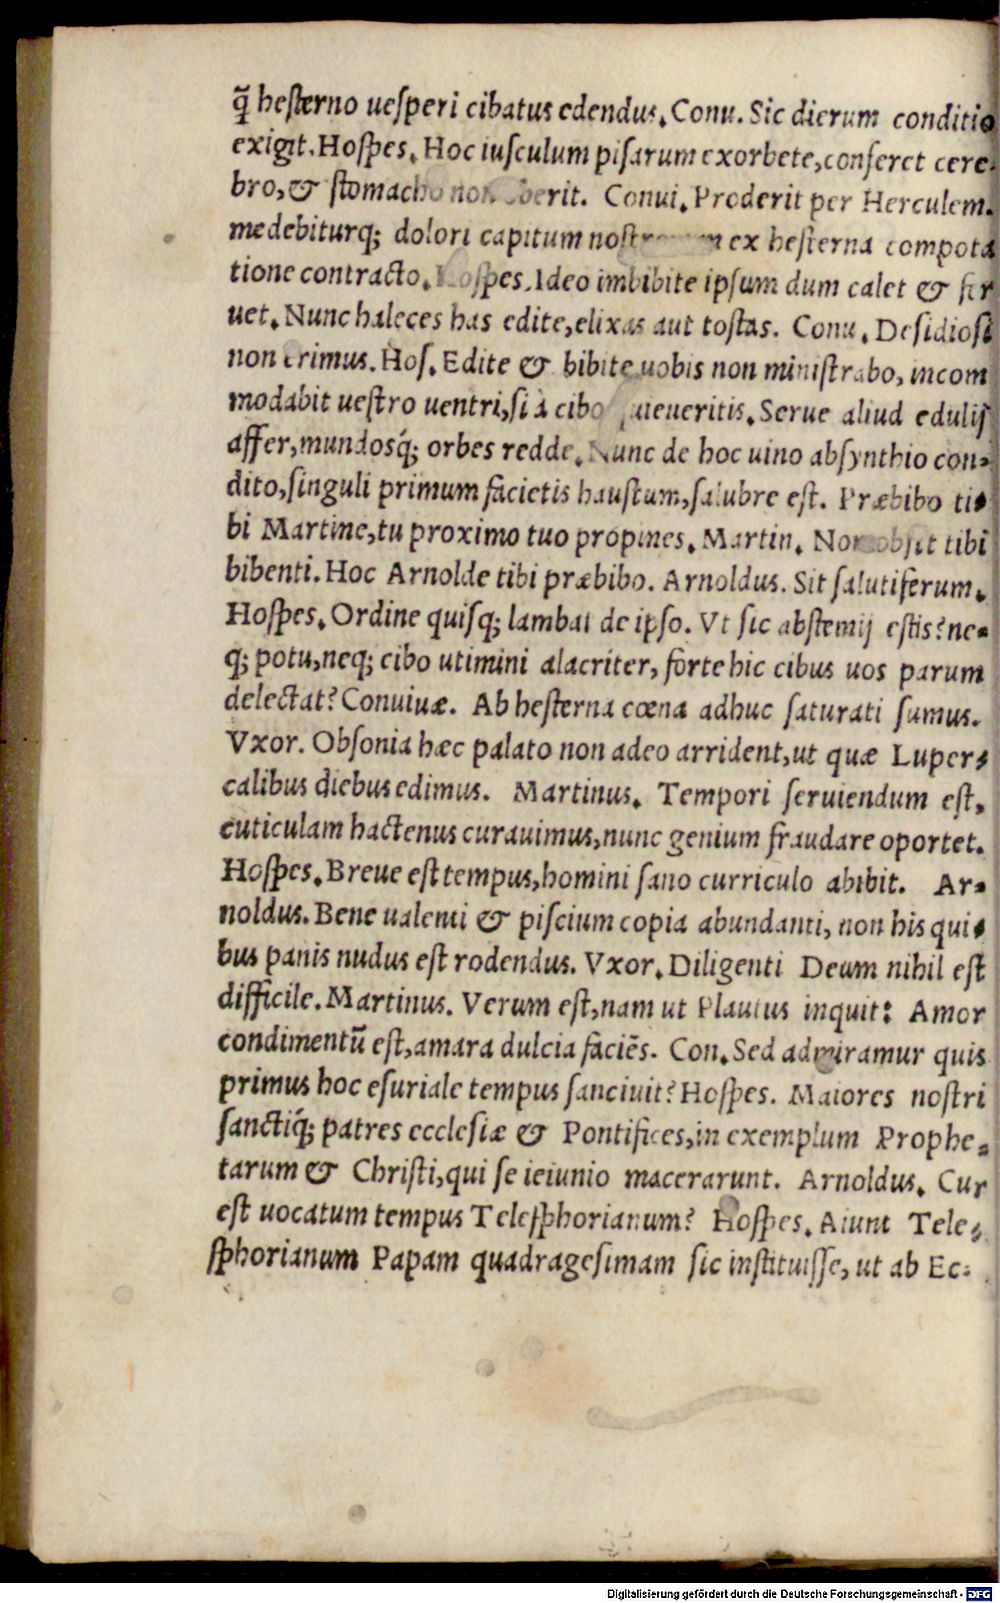 q̃ hesterno uesperi cibatus edendus. Conu. Sic dierum conditio
exigit. Hospes. Hoc iusculum pisarum exorbete, conferet cere-
bro, & stomacho non oberit. Conui. Proderit per Herculem.
medebiturq; dolori capitum ex hesterna compota
tione contracto. Hospes. Ideo imbibite ipsum dum calet & fer
uet. Nunc haleces has edite, elixas aut tostas. Conu. Desidiosi
non erimus. Hos. Edite & bibite uobis non ministrabo, incom
modabit uestro uentri, si à cibo quieueritis. Serue aliud edulij
affer, mundosq́; orbes redde. Nunc de hoc uino absynthio con-
dito, singuli primum facietis haustum, salubre est. Præbibo ti-
bi Martine, tu proximo tuo propines. Martin. Non obsit tibi
bibenti. Hoc Arnolde tibi præbibo. Arnoldus. Sit salutiferum.
Hospes. Ordine quisq; lambat de ipso. Vt sic abstemij estis? ne-
q; potu, neq; cibo utimini alacriter, forte hic cibus uos parum
delectat? Conuiuæ. Ab hesterna cœna adhuc saturati sumus.
Vxor. Obsonia hæc palato non adeo arrident, ut quæ Luper-
calibus diebus edimus. Martinus. Tempori seruiendum est,
cuticulam hactenus curauimus, nunc genium fraudare oportet.
Hospes. Breue est tempus, homini sano curriculo abibit. Ar-
noldus. Bene ualenti & piscium copia abundanti, non his qui-
bus panis nudus est rodendus. Vxor. Diligenti Deum nihil est
difficile. Martinus. Verum est, nam ut Plautus inquit: Amor
condimentũ est, amara dulcia faciẽs. Con. Sed admiramur quis
primus hoc esuriale tempus sanciuit? Hospes. Maiores nostri
sanctiq́; patres ecclesiæ & Pontifices, in exemplum Prophe-
tarum & Christi, qui se ieiunio macerarunt. Arnoldus. Cur
est uocatum tempus Telesphorianum? Hospes. Aiunt Tele-
sphorianum Papam quadragesimam sic instituisse, ut ab Ec-
Digitalisierung gefördert durch die Deutsche Forschungsgemeinschaft - DFG